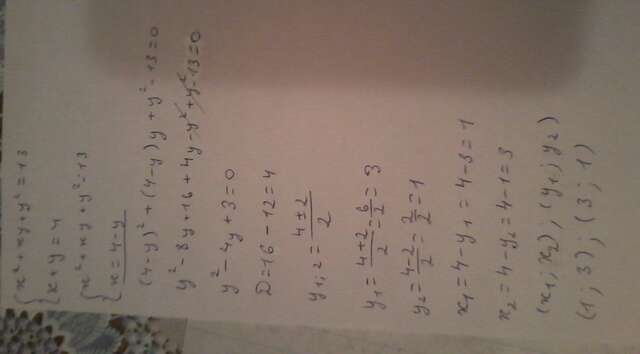 {x²+xy+y²=13
{x+y=4
{x²+xy+y²=13
{x=4-y
(4-y)²+(4-y)y+y²-13=0
y²-8y+16+4y-y²+y²-13=0
y²-4y+3=0
D=16-12=4
y₁;₂=(4±2)/2
y₁=(4+2)/2=6/2=3
y₂=(4-2)/2=2/2=1
x₁=4-y₁=4-3=1
x₂=4-y₂=4-1=3
(x₁;x₂);(y₁;y₂)
(1;3);(3;1)